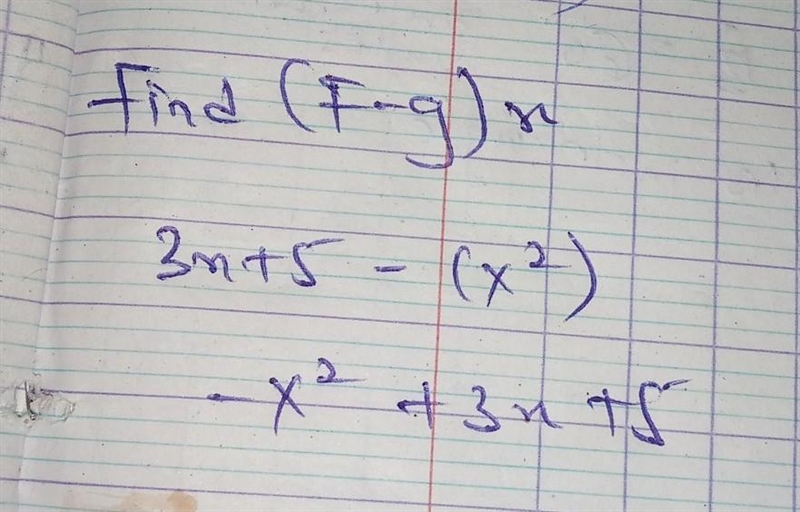 Find (F-g)x
3x+5 - (x²)
-x² +3x+5